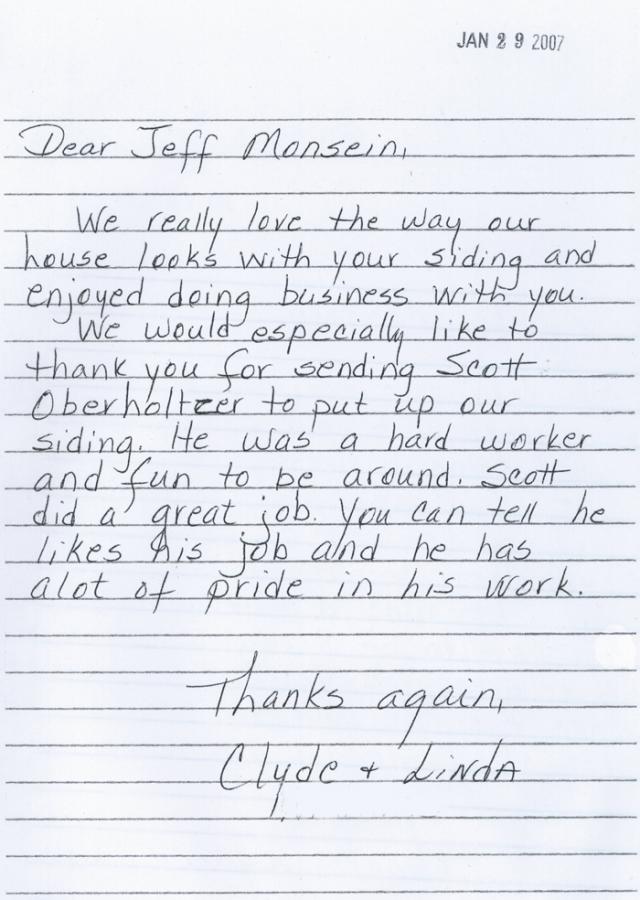 JAN 29 2007
Dear Jeff Monsein,
We really love the way our
house looks with your siding and
enjoyed doing business with you.
We would especially like to
thank you for sending Scott
Oberholtzer to put up our
siding. He was a hard worker
and fun to be around. Scott
did a great job. You can tell he
likes his job and he has
alot of pride in his work.
Thanks again,
Clyde + Linda